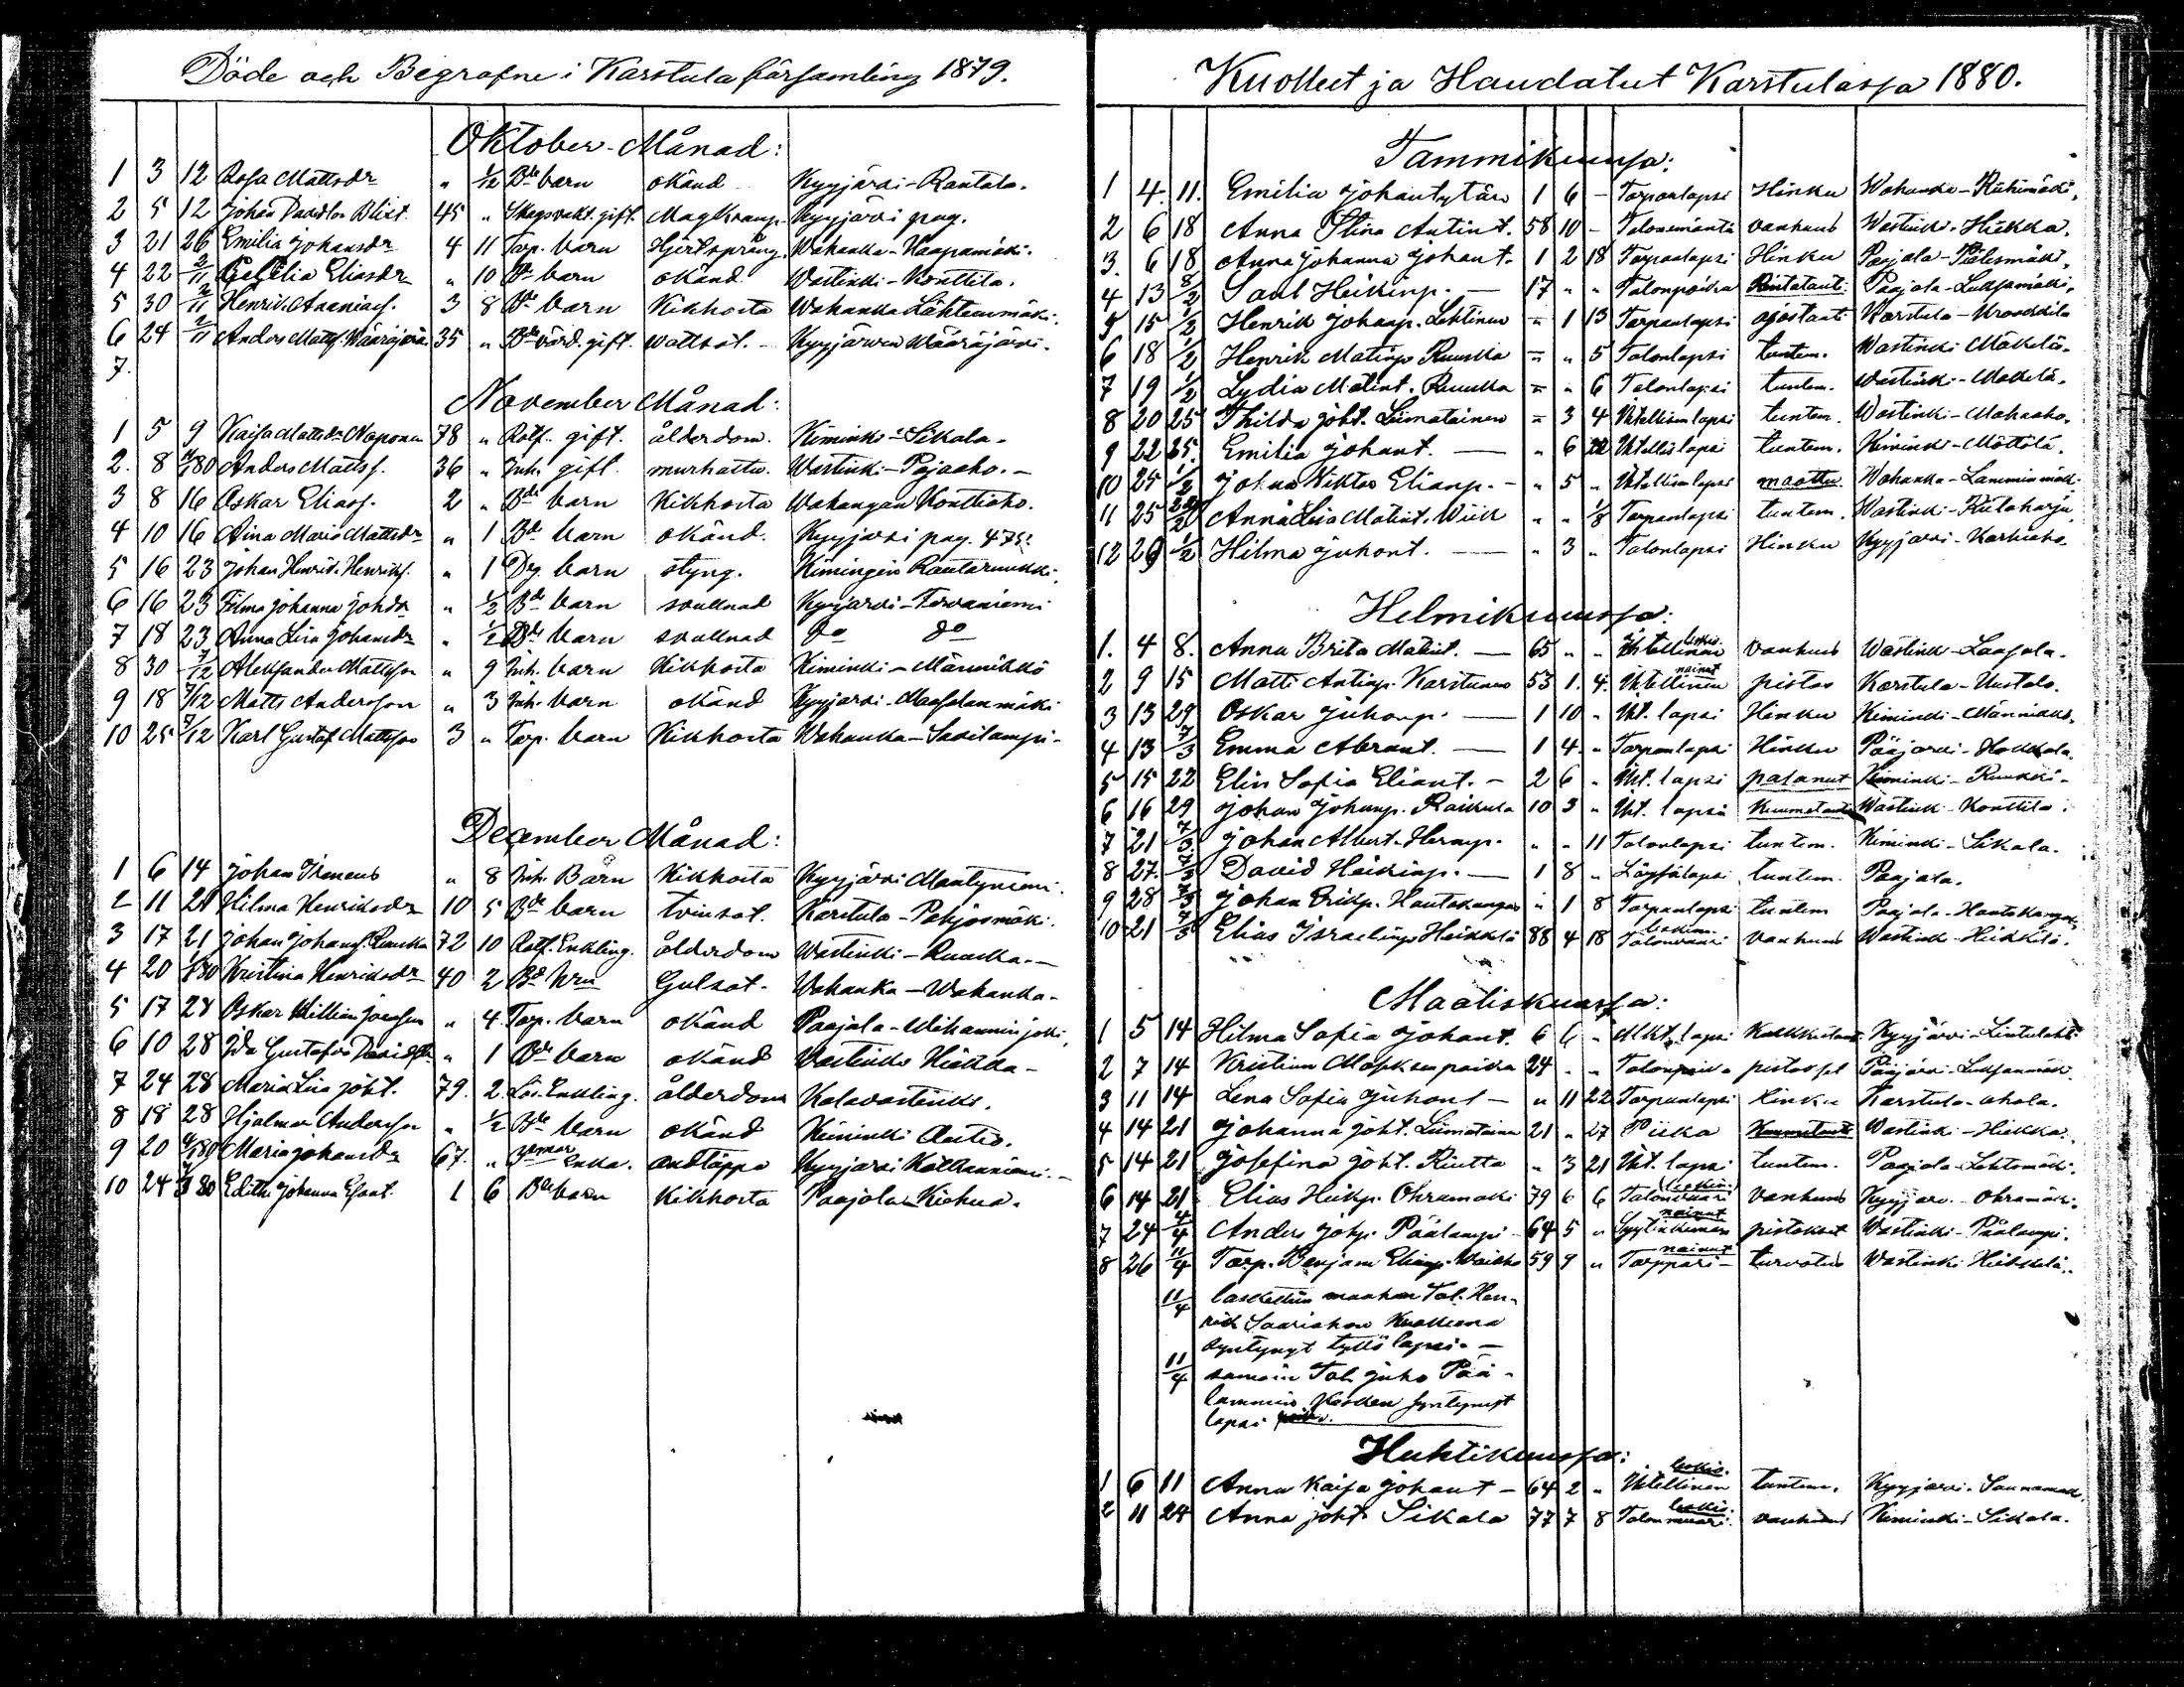 Döde och Begrafne i Karstula församling 1879.
Oktober Månad:
1 3 12 Rosa Mattsdr " 1/12 Bde barn okänd Kyyjärvi-Rantala.
2 5 12 Johan Davidson Blixt 45 " Skogsvakt. gift. Magkramp Kyyjärvi pag.
3 21 26 Emilia Johansdr 4 11 Torp. barn Hjertsprång Wahanka-Haapamäki.
4 22 2/11 Cecilia Eliasdr " 10 Bde barn okänd Wastinki-Konttila.
5 30 2/11 Henrik Ananias. 3 8 Bde barn Kikhosta Wahanka Lähteenmäki.
6 24 2/11 Anders Mattss. Wääräjärvi 35 " Bde värd. gift. wattsot. Kyyjärven Wääräjärvi.
7.
November Månad:
1 5 9 Kaisa Mattsdr Noponen 78 " Rotf. gift. ålderdom. Kiminki-Sikala.
2. 8 /80 Anders Mattss. 36 " Inh. gift. murhattu. Wastinki-Pajaaho.
3 8 16 Oskar Eliass. 2 " Bde barn Kikhosta Wahangan Konttiaho.
4 10 16 Aina Maria Mattsdr " 1 Bde barn okänd. Kyyjärvi pag. 475.
5 16 23 Johan Henrik Henrikss. " 1 Drg. barn styng. Kimingin Rautaruukki.
6 16 23 Filma Johanna Johdr " 1/2 Bde barn svullnad Kyyjärvi-Tervaniemi
7 18 23 Anna Lisa Johansdr " 1/2 Bde barn svullnad do do
8 30 7/12 Aleksander Mattsson " 9 Inh. barn Kikhosta Kiminki-Männikkö
9 18 7/12 Matts Andersson " 3 Inh. barn okänd Kyyjärvi-Maasalanmäki
10 25 7/12 Karl Gustaf Mattsson 3 " Torp. barn Kikhosta Wahanka-Saarilampi.
December Månad:
1 6 14 Johan Ireneus " 8 Inh. Barn Kikhosta Kyyjärvi Mäntyniemi.
2 11 21 Hilma Henriksdr 10 5 Bde barn tvinsot. Karstula-Pohjosmäki.
3 17 21 Johan Johanss. Ruuska 72 10 Rotf. Enkling. ålderdom Wastinki-Ruuska.
4 20 /80 Kristina Henriksdr 40 2 Bde Hru Gulsot. Wahanka-Wahanka.
5 17 28 Oskar William " 4. Torp. barn okänd Paajala-
6 10 28 Ida Gustafva " 1 Bde barn okänd Wastinki Hiekka-
7 24 28 Maria Lisa Joht. 79. 2. Lös. Enkling. ålderdom Kalavastinki.
8 18 28 Hjalmar Andersson " 1/2 Bde barn okänd Kiminki Autio.
9 20 /80 Maria Johansdr 67. " Enka. andtäppa Kyyjärvi
10 24 /80 Edith Johanna Esaat. 1 6 Bde barn Kikhosta Paajala-Kiehua.
Kuolleet ja Haudatut Karstulassa 1880.
Tammikuussa:
1 4. 11. Emilia Johantytär 1 6 - Torpanlapsi Hinku Wahanka-Riihimäki.
2 6 18 Anna Stina Antint. 58 10 - Talonemäntä vanhuus Wastink. Hiekka.
3. 6 18 Anna Johanna Johant. 1 2 18 Torpanlapsi Hinku Paajala-
4 13 8/2 Saul Heikinp. 17 " " Talonpoika Rintataut. Paajala-Luksanmäki.
5 15 1/2 Henrik Johanp. Lehtinen " 1 13 Torpanlapsi ajostauti Karstula-
6 18 1/2 Henrik Matinp. Ruuska " " 5 Talonlapsi tuntem. Wastinki Mäkelä.
7 19 1/2 Lydia Matint. Ruuska " " 6 Talonlapsi tuntem. Wastinki-Mäkelä.
8 20 25 Thilda Joht. Liimatainen " 3 4 Itsellisen lapsi tuntem. Wastink-
9 22 25. Emilia Johant. " 6 Itsellis lapsi tuntem. Kiminki-Möttölä.
10 25 1/2 Johan Viktor Elianp. " 5 " Itsellisen lapsi maattu. Wahanka-Lamminmäki.
11 25 Anna Lisa Matint. Wiik " " 1/8 Torpanlapsi tuntem. Wastinki-
12 26 1/2 Hilma Juhont. " 3 " Talonlapsi Hinku Kyyjärvi-Karhiaho.
Helmikuussa:
1. 4 8. Anna Brita Matint. 65 " " Itsellinen leskis. vanhuus Wastink-Laajala.
2 9 15 Matti Antinp. Karstunen 53 1. 4. Itsellinen nainut pistos Karstula-Uustalo.
3 13 29 Oskar Juhonp. 1 10 " Itst. lapsi Hinku Kiminki-Männikkö.
4 13 7/3 Emma Abrant. 1 4 " Torpanlapsi Hinku Pääjärvi-Hokkala.
5 15 22 Elin Sofia Eliant. 2 6 " Itst. lapsi palanut Kiminki-Ruukki.
6 16 29 Johan Johanp. Raikula 10 3 " Itst. lapsi Kuumetauti Wastink-Konttila.
7 21 7/3 Johan Albert Hermp. " " 11 Talonlapsi tuntem. Kiminki-Sikala.
8 27. 7/3 David Heikinp. 1 8 " Löysälapsi tuntem. Paajala.
9 28 7/3 Johan Erikp. Hautakangas " 1 8 Torpanlapsi tuntem Paajala-Hautakangas.
10 21 7/3 Elias Israelinp. Heikkilä 88 4 18 Talonvaari leskim. vanhuus Wastink-Heikkilä.
Maaliskuussa:
1 5 14 Hilma Sofia Johant. 6 6 " lapsi Kyyjärvi-Lintulahti
2 7 14 Kristian 24 " " Talonpoika pistos Pääjärvi-Luksanmäki.
3 11 14 Lena Sofia Juhont " 11 22 Torpanlapsi hinku Karstula-Ahola.
4 14 21 Johanna Joht. Liimatainen 21 " 27 Piika Kuumetauti Wastink-Hiekka.
5 14 21 Josefina Joht. Riutta " 3 21 Itst. lapsi tuntem. Paajala-Lehtomäki.
6 14 21 Elias Heikp. Ohramäki 79 6 6 Talonvaari leskim. vanhuus Kyyjärv. Ohramäki.
7 24 4/4 Anders Johp. Päälampi 64 5 " Syytinkimies nainut pistokset Wastinki-Päälampi.
8 26 11/4 Torp. Benjam Elianp. 59 9 " Torppari nainut turvotus Wastinki Heikkilä.
11/4 laskettiin maahan Tal. Hen-
rik Saariahon Kuolleena
syntynyt tyttö lapsi.
11/4 samoin Tal. Juho Pää-
lammin Kesken syntynyt
lapsi
Huhtikuussa:
1 6 11 Anna Kaisa Johant - 64 2 " Itsellinen leskis. tuntem. Kyyjärvi-
2 11 24 Anna Joht. Sikala 77 7 8 Talonmuori leskis. vanhuus Kiminki-Sikala.